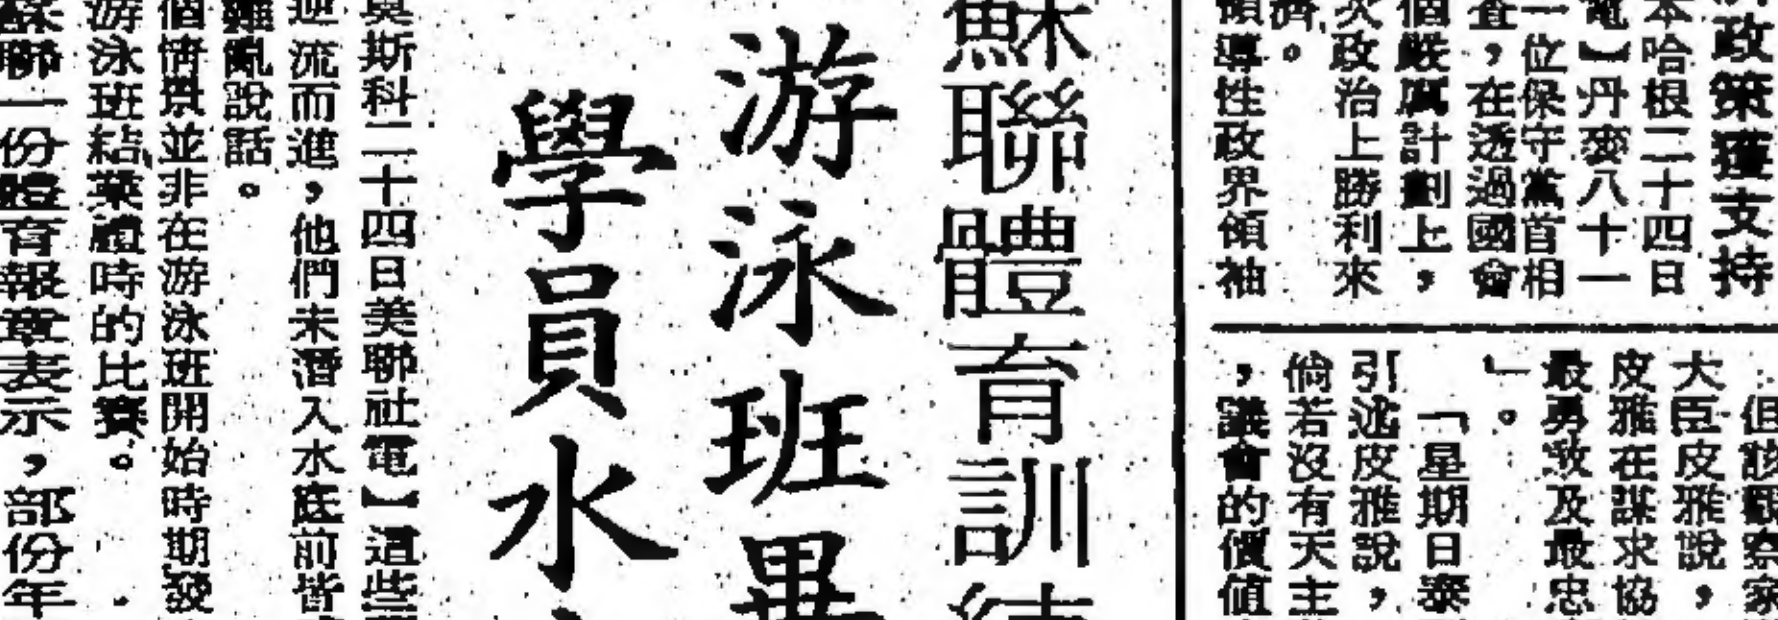 政策獲支持
本哈根二十四日
電】丹麥八十一
一位保守黨首相
查，在透過國會
個嚴厲計劃上，
次政治上勝利來
濟。
領導性政界領袖
但該觀察家
大臣皮雅說，
皮雅在謀求協
最勇敢及最忠
」。
「星期日泰
引述皮雅說，
倘若沒有天主
，議會的價值
蘇聯體育訓練
游泳班畢
學員水
莫斯科二十四日美聯社電】這些
逆流而進，他們未潛入水底前皆
雜亂說話。
個情景並非在游泳班開始時期發
游泳班結業禮時的比賽。
蘇聯一份體育報章表示，部份年